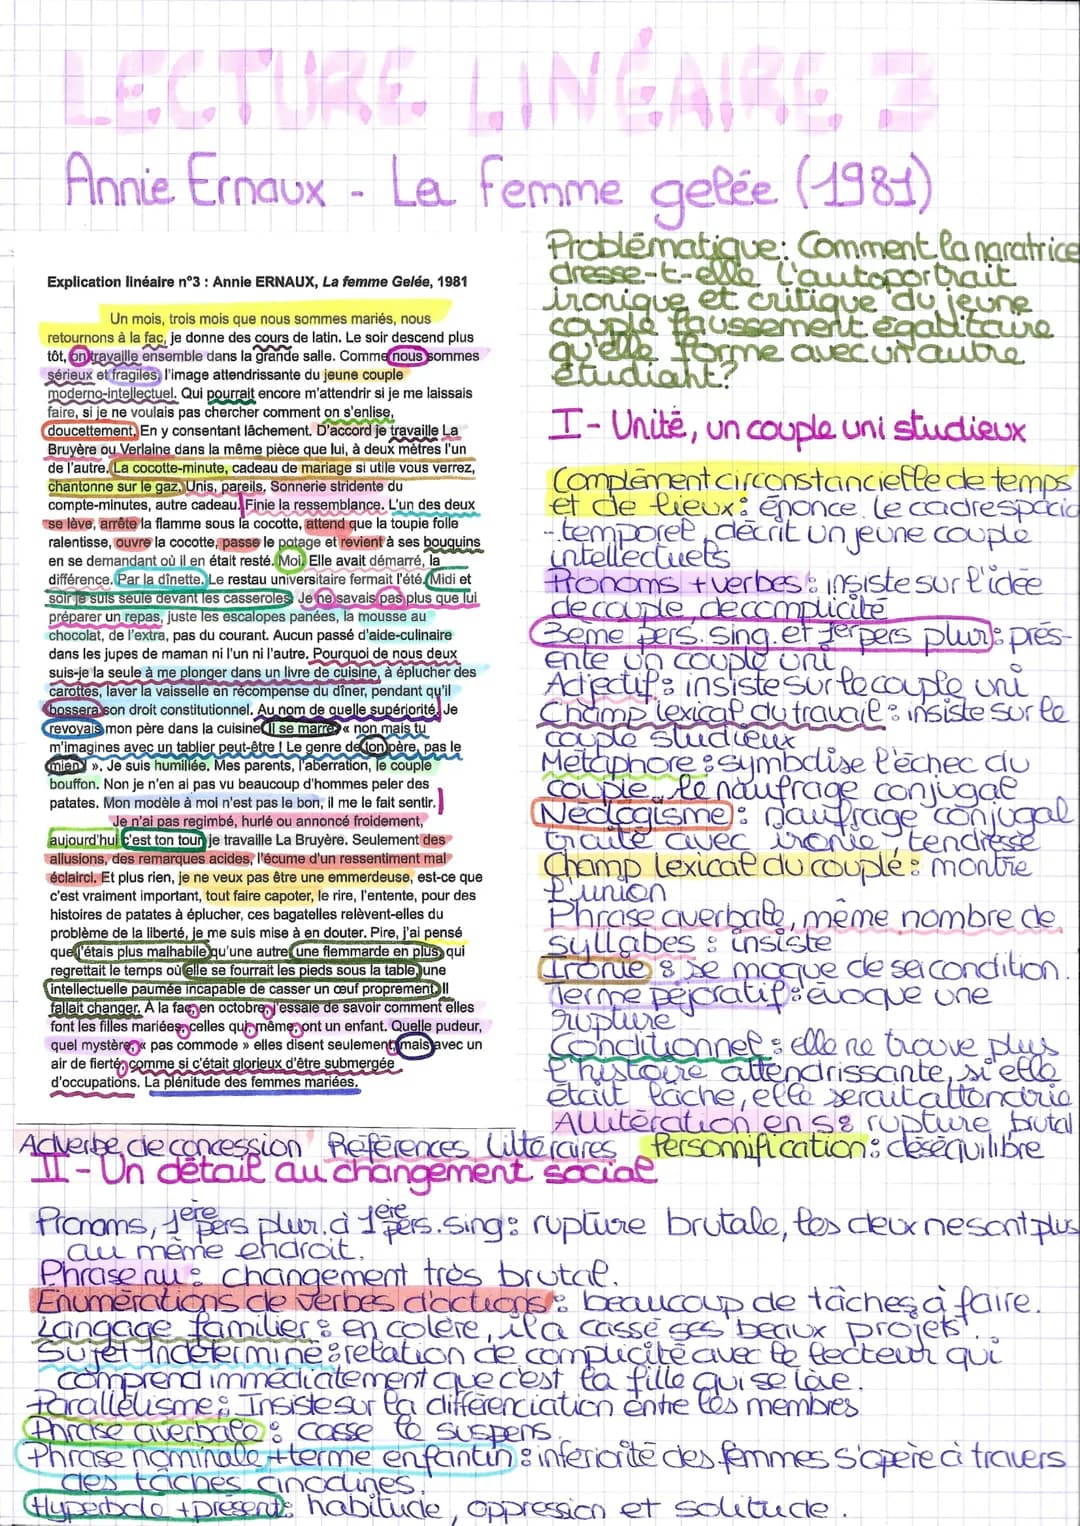 LECTURE LINÉAIRE 3
Annie Ernaux - La femme gelée (1981)
Explication linéaire n°3 : Annie ERNAUX, La femme Gelée, 1981
Un mois, trois mois que nous sommes mariés, nous
retournons à la fac, je donne des cours de latin. Le soir descend plus
tôt, on travaille ensemble dans la grande salle. Comme nous sommes
sérieux et fragiles, l'image attendrissante du jeune couple
moderno-intellectuel. Qui pourrait encore m'attendrir si je me laissais
faire, si je ne voulais pas chercher comment on s'enlise,
doucettement. En y consentant lâchement. D'accord je travaille La
Bruyère ou Verlaine dans la même pièce que lui, à deux mètres l'un
de l'autre. La cocotte-minute, cadeau de mariage si utile vous verrez,
chantonne sur le gaz. Unis, pareils. Sonnerie stridente du
compte-minutes, autre cadeau. Finie la ressemblance. L'un des deux
se lève, arrête la flamme sous la cocotte, attend que la toupie folle
ralentisse, ouvre la cocotte, passe le potage et revient à ses bouquins
en se demandant où il en était resté. Moi. Elle avait démarré, la
différence. Par la dînette. Le restau universitaire fermait l'été. Midi et
soir je suis seule devant les casseroles. Je ne savais pas plus que lui
préparer un repas, juste les escalopes panées, la mousse au
chocolat, de l'extra, pas du courant. Aucun passé d'aide-culinaire
dans les jupes de maman ni l'un ni l'autre. Pourquoi de nous deux
suis-je la seule à me plonger dans un livre de cuisine, à éplucher des
carottes, laver la vaisselle en récompense du dîner, pendant qu'il
bossera son droit constitutionnel. Au nom de quelle supériorité. Je
revoyais mon père dans la cuisine. Il se marre « non mais tu
m'imagines avec un tablier peut-être ! Le genre de ton père, pas le
mien ». Je suis humiliée. Mes parents, l'aberration, le couple
bouffon. Non je n'en ai pas vu beaucoup d'hommes peler des
patates. Mon modèle à moi n'est pas le bon, il me le fait sentir.
Je n'ai pas regimbé, hurlé ou annoncé froidement,
aujourd'hui c'est ton tour, je travaille La Bruyère. Seulement des
allusions, des remarques acides, l'écume d'un ressentiment mal
éclairci. Et plus rien, je ne veux pas être une emmerdeuse, est-ce que
c'est vraiment important, tout faire capoter, le rire, l'entente, pour des
histoires de patates à éplucher, ces bagatelles relèvent-elles du
problème de la liberté, je me suis mise à en douter. Pire, j'ai pensé
que j'étais plus malhabile qu'une autre, une flemmarde en plus, qui
regrettait le temps où elle se fourrait les pieds sous la table, une
intellectuelle paumée incapable de casser un œuf proprement. Il
fallait changer. A la fac, en octobre, j'essaie de savoir comment elles
font les filles mariées, celles qui, même, ont un enfant. Quelle pudeur,
quel mystère, « pas commode » elles disent seulement, mais avec un
air de fierté, comme si c'était glorieux d'être submergée
d'occupations. La plénitude des femmes mariées.
Problématique : Comment la naratrice
dresse-t-elle l'autoportrait
ironique et critique du jeune
couple faussement égalitaire
qu'elle forme avec un autre
étudiant ?
I - Unité, un couple uni studieux
Complément circonstancielle de temps
et de lieux : énonce le cadre spacio
-temporel, décrit un jeune couple
intellectuels
Pronoms + verbes : insiste sur l'idée
de couple, de complicité
3eme pers. sing. et 1er pers plur : prés-
ente un couple uni
Adjectif : insiste sur le couple uni
Champ lexical du travail : insiste sur le
couple studieux
Métaphore : symbolise l'échec du
couple, le naufrage conjugal
Néologisme : naufrage conjugal
traité avec ironie, tendresse
Champ lexical du couple : montre
l'union
Phrase averbale, même nombre de
syllabes : insiste
Ironie : se moque de sa condition.
Terme péjoratif : évoque une
rupture
Conditionnel : elle ne trouve plus
l'histoire attendrissante, si elle
était lâche, elle serait attendrie
Allitération en s : rupture brutal
Adverbe de concession Références littéraires Personnification : déséquilibre
II - Un détail au changement social
Pronoms, 1ère pers plur. à 1ère pers. sing : rupture brutale, les deux ne sont plus
au même endroit.
Phrase nu : changement très brutal.
Enumérations de verbes d'actions : beaucoup de tâches à faire.
Langage familier : en colère, il a cassé ses beaux projets.
Sujet indéterminé : relation de complicité avec le lecteur qui
comprend immédiatement que c'est la fille qui se lève.
Parallélisme : Insiste sur la différenciation entre les membres
Phrase averbale : casse le suspens.
Phrase nominale + terme enfantin : inferiorité des femmes s'opère à travers
des tâches anodines.
Hyperbole + présent : habitude, oppression et solitude.